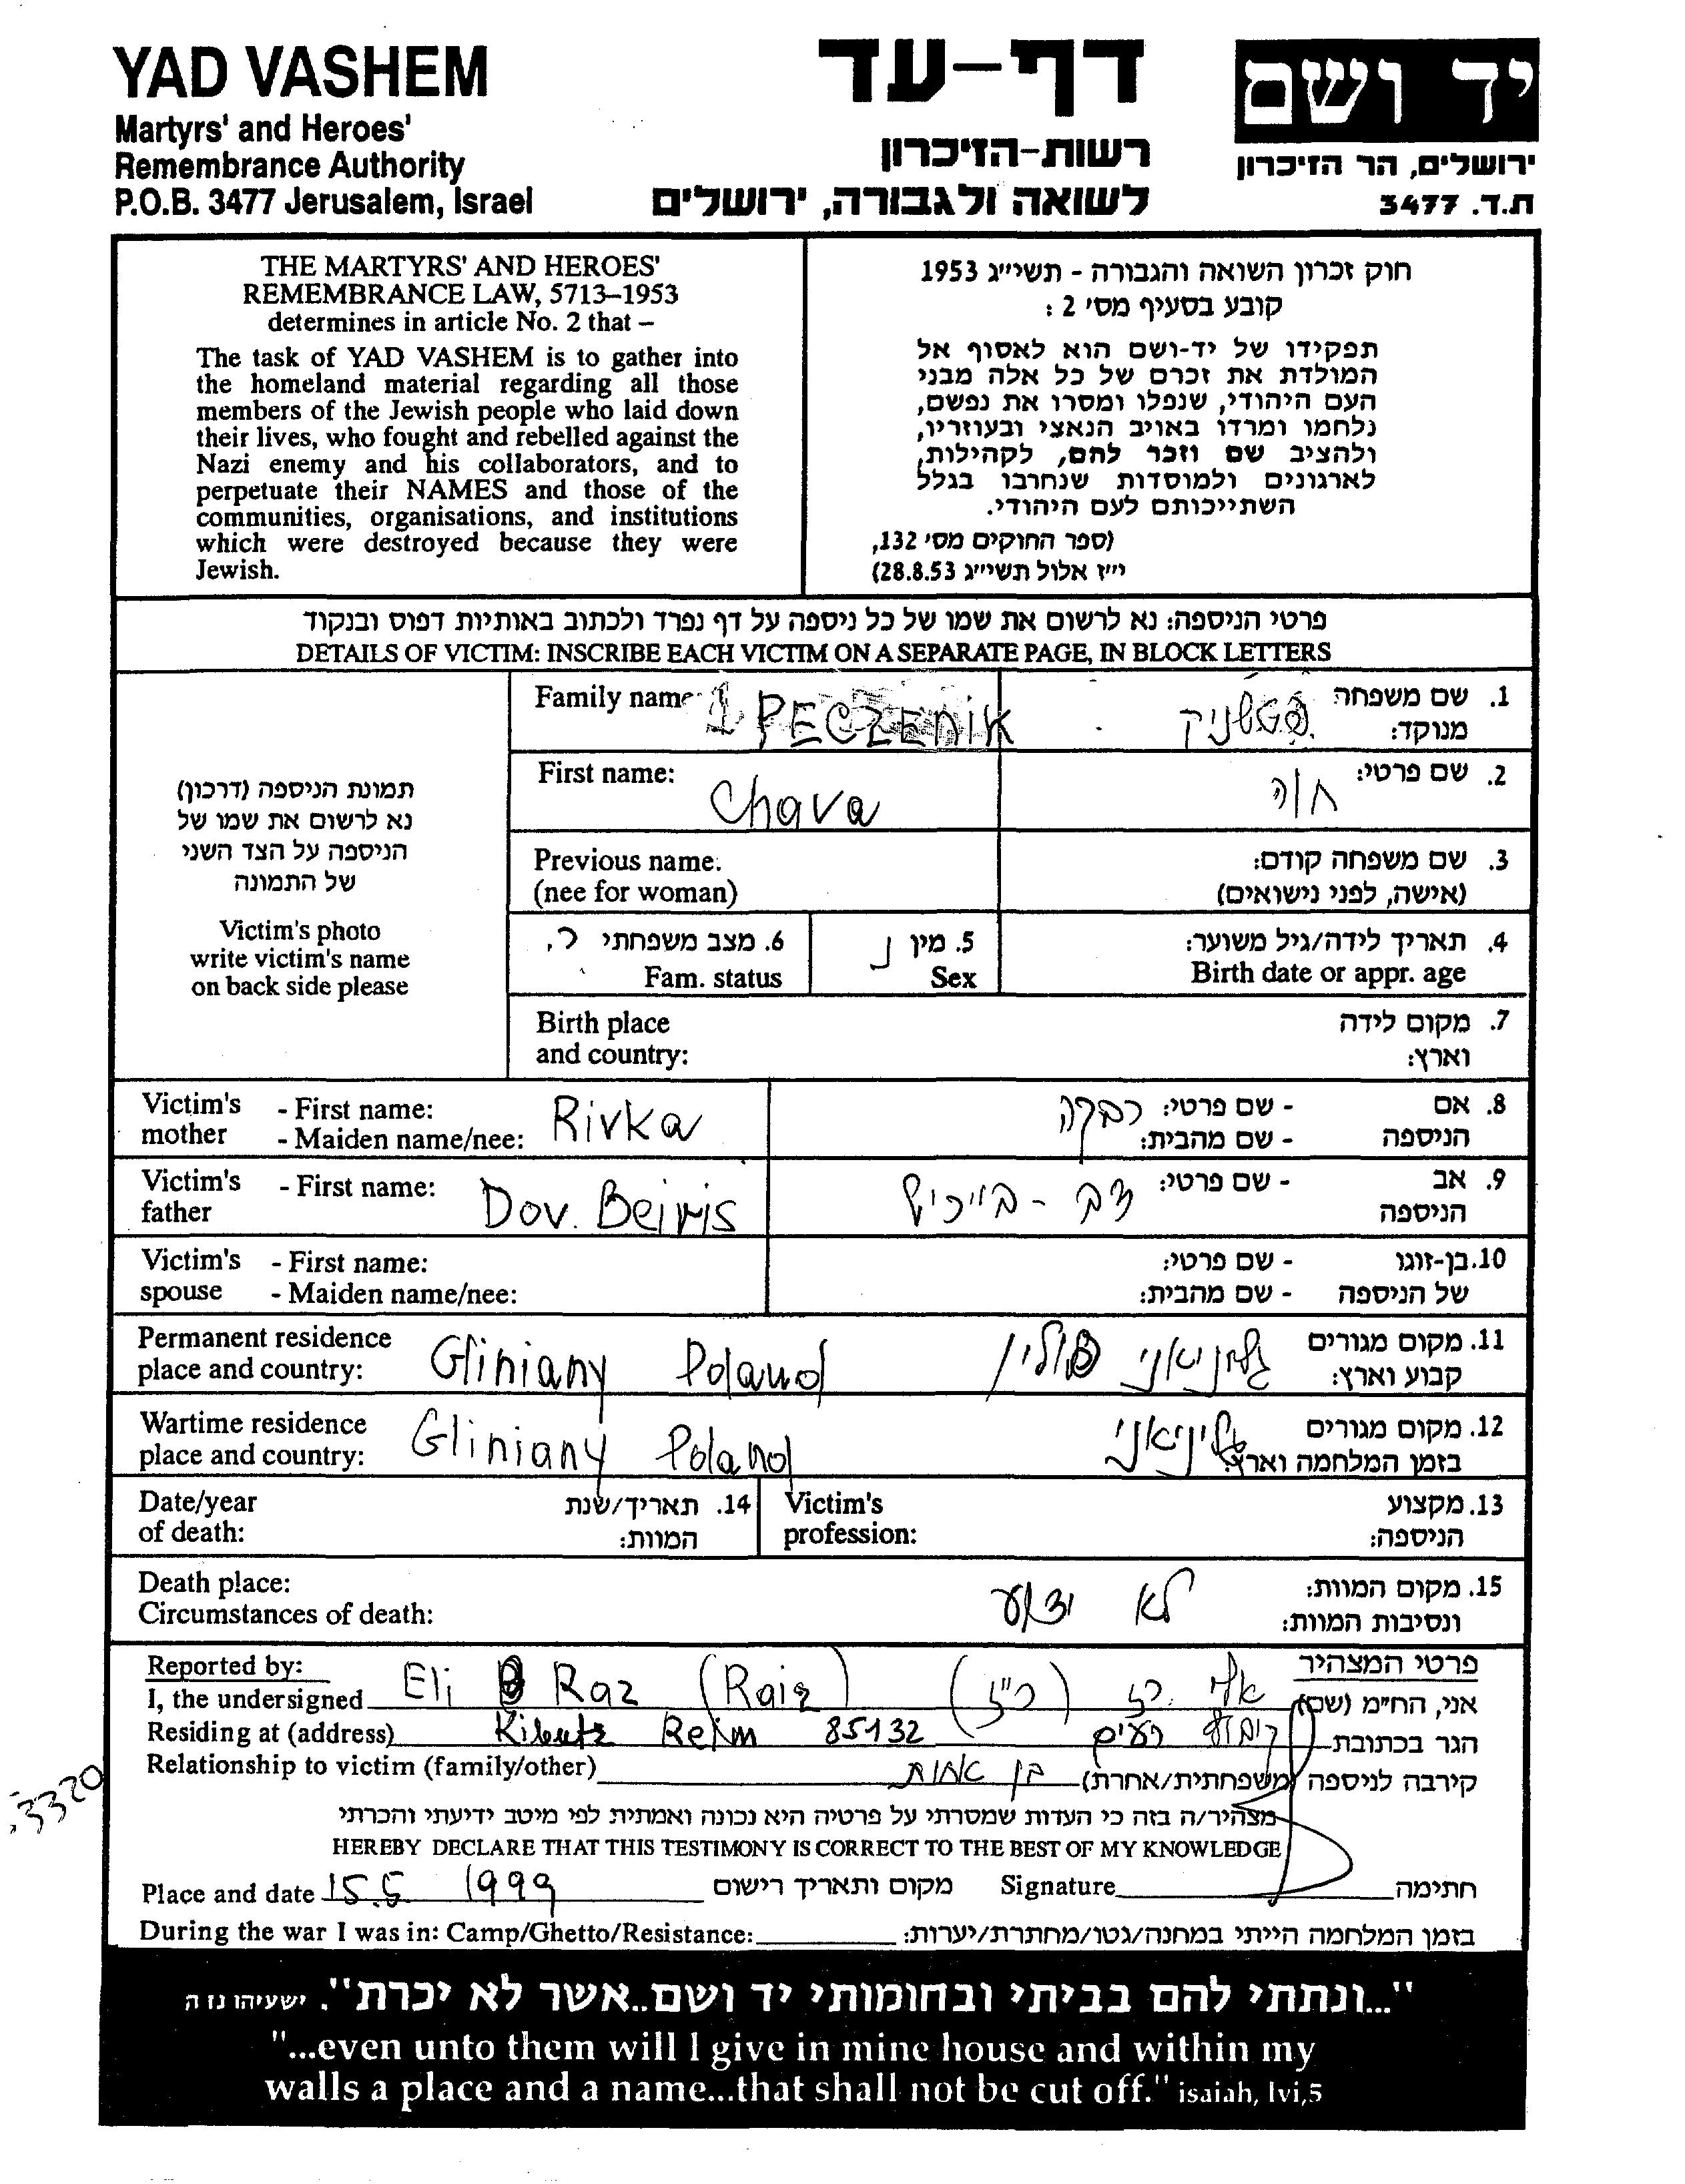 YAD VASHEM
Martyrs' and Heroes'
Remembrance Authority
P.O.B. 3477 Jerusalem, Israel
דף-עד
רשות-הזיכרון
לשואה ולגבורה, ירושלים
יד ושם
ירושלים, הר הזיכרון
ת.ד. 3477
THE MARTYRS' AND HEROES'
REMEMBRANCE LAW, 5713–1953
determines in article No. 2 that –
The task of YAD VASHEM is to gather into
the homeland material regarding all those
members of the Jewish people who laid down
their lives, who fought and rebelled against the
Nazi enemy and his collaborators, and to
perpetuate their NAMES and those of the
communities, organisations, and institutions
which were destroyed because they were
Jewish.
חוק זכרון השואה והגבורה - תשי"ג 1953
קובע בסעיף מס' 2 :
תפקידו של יד-ושם הוא לאסוף אל
המולדת את זכרם של כל אלה מבני
העם היהודי, שנפלו ומסרו את נפשם,
נלחמו ומרדו באויב הנאצי ובעוזריו,
ולהציב שם וזכר להם, לקהילות,
לארגונים ולמוסדות שנחרבו בגלל
השתייכותם לעם היהודי.
(ספר החוקים מס' 132,
י"ז אלול תשי"ג 28.8.53)
פרטי הניספה: נא לרשום את שמו של כל ניספה על דף נפרד ולכתוב באותיות דפוס ובנקוד
DETAILS OF VICTIM: INSCRIBE EACH VICTIM ON A SEPARATE PAGE, IN BLOCK LETTERS
תמונת הניספה (דרכון)
נא לרשום את שמו של
הניספה על הצד השני
של התמונה
Victim's photo
write victim's name
on back side please
Family name PECZENIK
1. שם משפחה פטשניק
מנוקד:
First name: Chava
2. שם פרטי: חוה
Previous name.
(nee for woman)
3. שם משפחה קודם:
(אישה, לפני נישואים)
6. מצב משפחתי ר.
Fam. status
5. מין נ
Sex
4. תאריך לידה/גיל משוער:
Birth date or appr. age
Birth place
and country:
7. מקום לידה
וארץ:
Victim's - First name: Rivka
mother - Maiden name/nee:
8. אם - שם פרטי: רבקה
הניספה - שם מהבית:
Victim's - First name: Dov. Beiris
father
9. אב - שם פרטי: דב - בייריש
הניספה
Victim's - First name:
spouse - Maiden name/nee:
10. בן-זוגו - שם פרטי:
של הניספה - שם מהבית:
Permanent residence Gliniany Poland
place and country:
11. מקום מגורים גליניאני פולין
קבוע וארץ:
Wartime residence Gliniany Poland
place and country:
12. מקום מגורים גליניאני
בזמן המלחמה וארץ:
Date/year
of death:
14. תאריך/שנת
המוות:
Victim's
profession:
13. מקצוע
הניספה:
Death place:
Circumstances of death:
15. מקום המוות: לא ידוע
ונסיבות המוות:
Reported by:
I, the undersigned Eli Raz (Raiz)
פרטי המצהיר
אני, הח"מ (שם) אלי רז (רייז)
Residing at (address) Kibutz Reim 85132
הגר בכתובת קיבוץ רעים
Relationship to victim (family/other)
קירבה לניספה (משפחתית/אחרת) בן אחות
3320
מצהיר/ה בזה כי העדות שמסרתי על פרטיה היא נכונה ואמתית לפי מיטב ידיעתי והכרתי
HEREBY DECLARE THAT THIS TESTIMONY IS CORRECT TO THE BEST OF MY KNOWLEDGE
Place and date 15.5 1999 מקום ותאריך רישום Signature חתימה
During the war I was in: Camp/Ghetto/Resistance: בזמן המלחמה הייתי במחנה/גטו/מחתרת/יערות:
"...ונתתי להם בביתי ובחומותי יד ושם..אשר לא יכרת". ישעיהו נז ה
"...even unto them will I give in mine house and within my
walls a place and a name...that shall not be cut off." isaiah, lvi,5